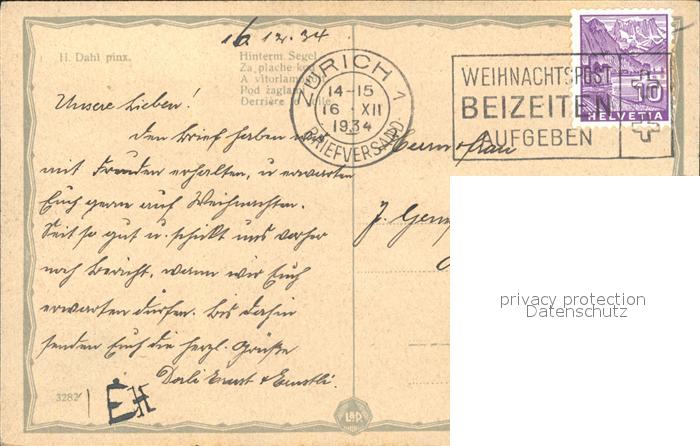 16.12.34
H. Dahl pinx.
Hinterm Segel
Za plache
A vitorla
Pod żagla
Derrière la voile
ZÜRICH 1
14-15
16. XII
1934
BRIEFVERSAND
WEIHNACHTSPOST
BEIZEITEN
AUFGEBEN
10
HELVETIA
Unsere Lieben!
Den Brief haben wir
mit Freuden erhalten, u erwarten
Euch gerne auf Weihnachten.
Seit so gut u. schickt uns vorher
noch Bericht, wann wir Euch
erwarten dürfen. Bis dahin
senden Euch die herzl. Grüße
Dorli Ernst & Ernstli.
Herrn & Frau
J.
privacy protection
Datenschutz
3282
EH
L&P